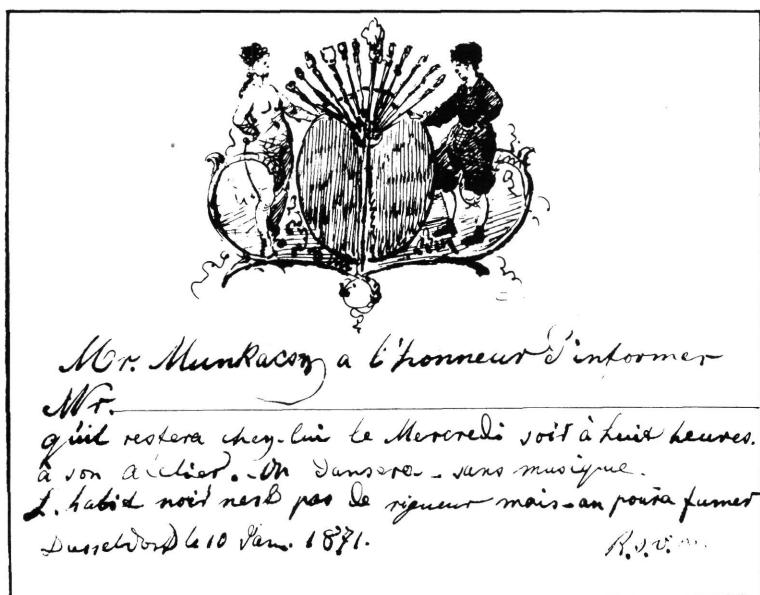 Mr. Munkacsy a l'honneur d'informer
Mr.
qu'il restera chez-lui le Mercredi soir à huit heures.
à son atelier. - On dansera - sans musique.
L'habit noir nest pas de rigueur mais - on poura fumer
Dusseldorf le 10 Jan. 1871.
R.s.v.